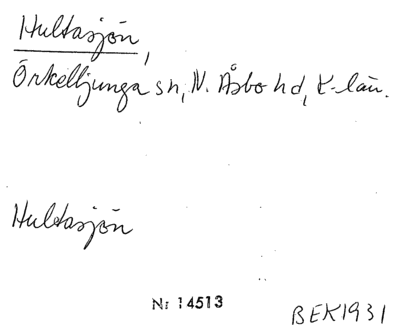 Hultasjön,
Örkelljunga sn, N. Åsbo hd, K-län.
Hultasjön
Nr 14513
BEK1931